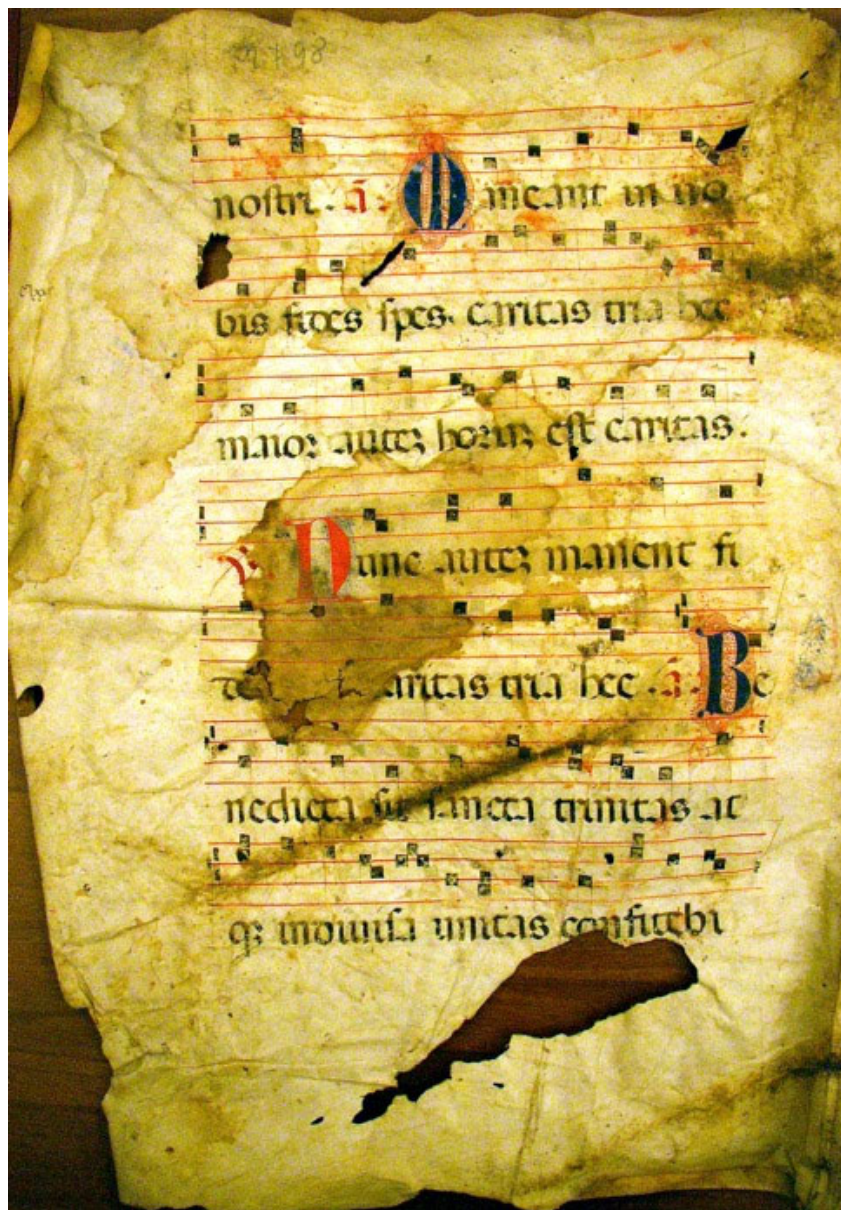 nostri . a . Maneant in vo
bis fides spes caritas tria hec
maior autez horuz est caritas .
V. Nunc autez manent fi
caritas tria hec . a . Be
nedicta sit sancta trinitas at
qz indivisa unitas confitebi